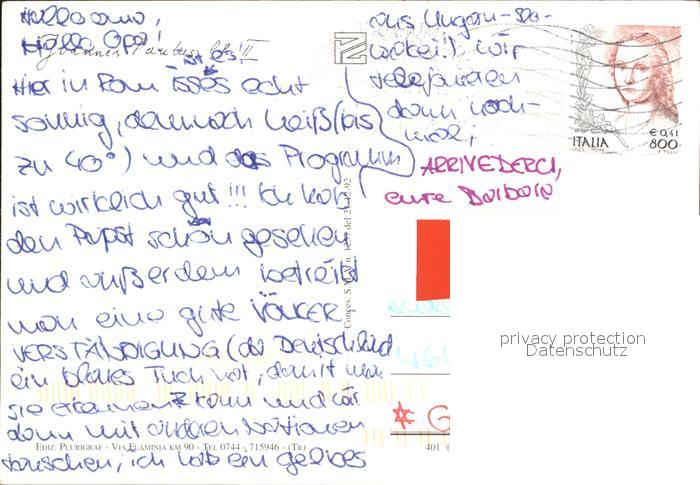 Hallo Oma,
Hallo Opa!
Joannes Paulus II
ist es!
Hier in Rom isses echt
sonnig, demnach heiß (bis
zu 40°) und das Programm
ist wirklich gut!!! Ich hab
den Papst schön gesehen
und außerdem betreibt
man eine gute VÖLKER
VERSTÄNDIGUNG (da Deutschland
ein blaues Tuch hat, damit man
sie erkennen kann und wir
dann mit anderen Nationen
tauschen, ich hab ein gelbes
aus Ungarn-Slo-
wakei!) wir
telefonieren
dann noch-
mal,
ARRIVEDERCI,
eure Barbara
ITALIA
€ 0,41
800
privacy protection
Datenschutz
EDIZ. PLURIGRAF - VIA FLAMINIA KM 90 - TEL 0744 - 715946 - (TR)
401